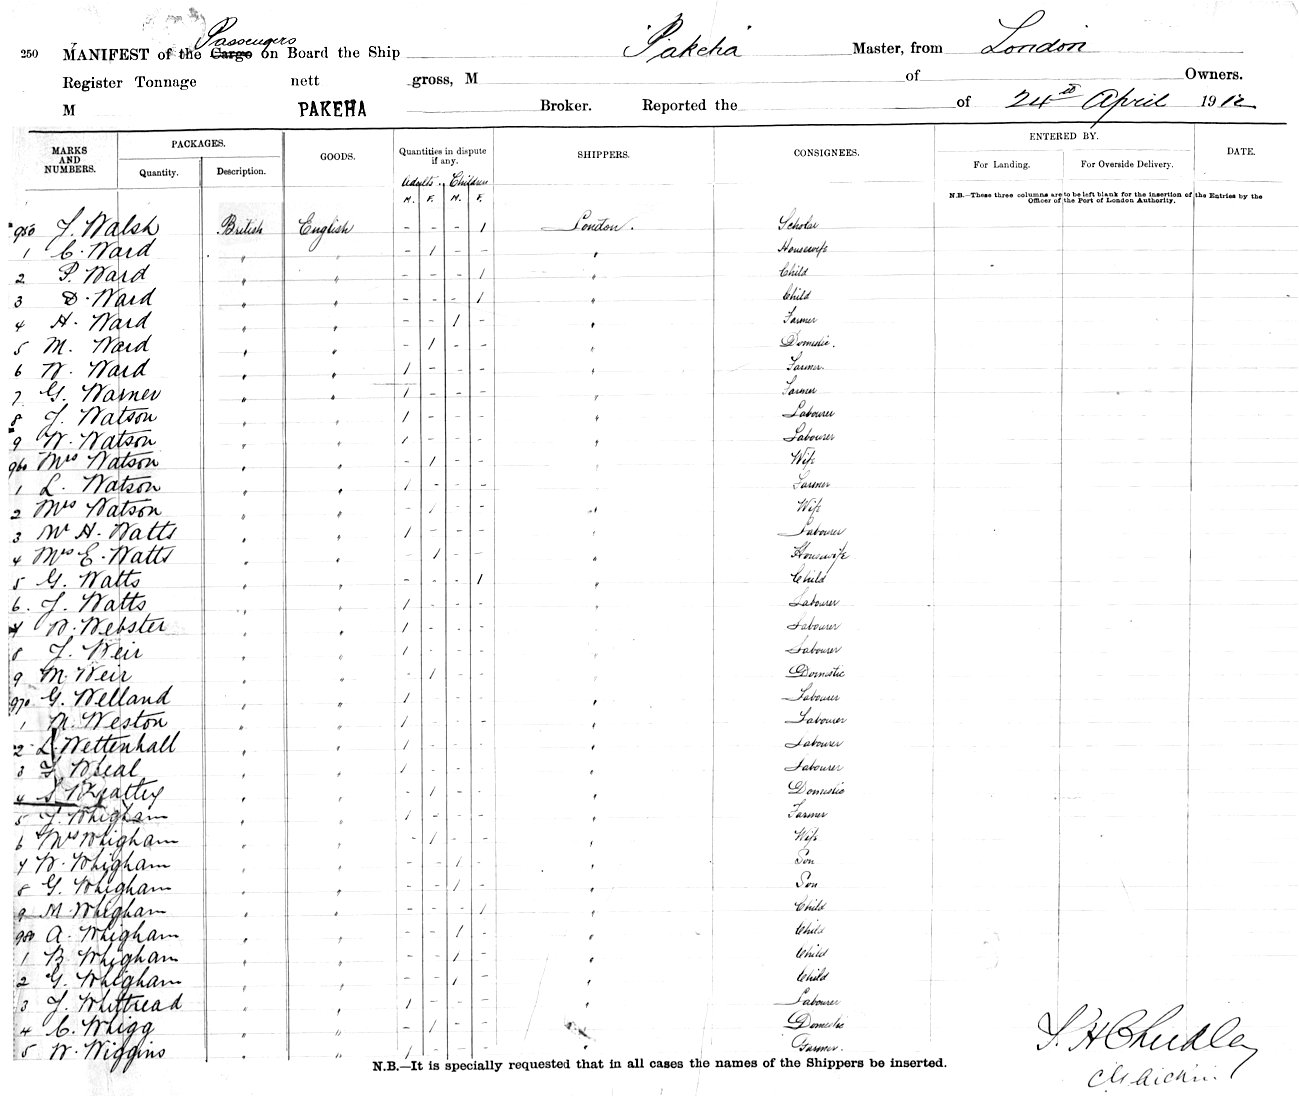 250 MANIFEST of the Cargo Passengers on Board the Ship 'Pakeha' Master, from London
Register Tonnage nett gross, M of Owners.
M PAKEHA Broker. Reported the of 24th April 1912
MARKS AND NUMBERS. PACKAGES. Quantity. Description. GOODS. Quantities in dispute if any. SHIPPERS. CONSIGNEES. ENTERED BY. For Landing. For Overside Delivery. DATE.
Adults. Children
M. F. M. F.
N.B.—These three columns are to be left blank for the insertion of the Entries by the Officer of the Port of London Authority.
950 J. Walsh British English - - - 1 London. Scholar
1 C. Ward " " - 1 - - " Housewife
2 P. Ward " " - - - 1 " Child
3 D. Ward " " - - - 1 " Child
4 H. Ward " " - - 1 - " Farmer
5 M. Ward " " - 1 - - " Domestic.
6 W. Ward " " 1 - - - " Farmer.
7 G. Warner " " 1 - - - Farmer
8 J. Watson " " 1 - - - " Labourer
9 W. Watson " " 1 - - - " Labourer
960 Mrs Watson " " - 1 - - " Wife
1 L. Watson " " 1 - - - " Farmer
2 Mrs Watson " " - 1 - - " Wife
3 Mr H. Watts " " 1 - - - " Labourer
4 Mrs E. Watts " " - 1 - - " Housewife
5 G. Watts " " - - - 1 " Child
6. J. Watts " " 1 - - - " Labourer
7 W. Webster " " 1 - - - " Labourer
8 J. Weir " " 1 - - - " Labourer
9 M. Weir " " - 1 - - " Domestic
970 G. Welland " " 1 - - - " Labourer
1 M. Weston " " 1 - - - " Labourer
2 L. Wettenhall " " 1 - - - " Labourer
3 Wheal " " 1 - - - " Labourer
4 S " " - 1 - - " Domestic
5 J. Whigham " " 1 - - - " Farmer
6 Mrs Whigham " " - 1 - - " Wife
7 W. Whigham " " - - 1 - " Son
8 G. Whigham " " - - 1 - " Son
9 M. Whigham " " - - - 1 " Child
980 A. Whigham " " - - 1 - " Child
1 B. Whigham " " - - 1 - " Child
2 G. Whigham " " - - 1 - " Child
3 J. Whittread " " 1 - - - " Labourer
4 C. Whigg " " - 1 - - " Domestic
5 W. Wiggins " " 1 - - - " Farmer.
N.B.—It is specially requested that in all cases the names of the Shippers be inserted.